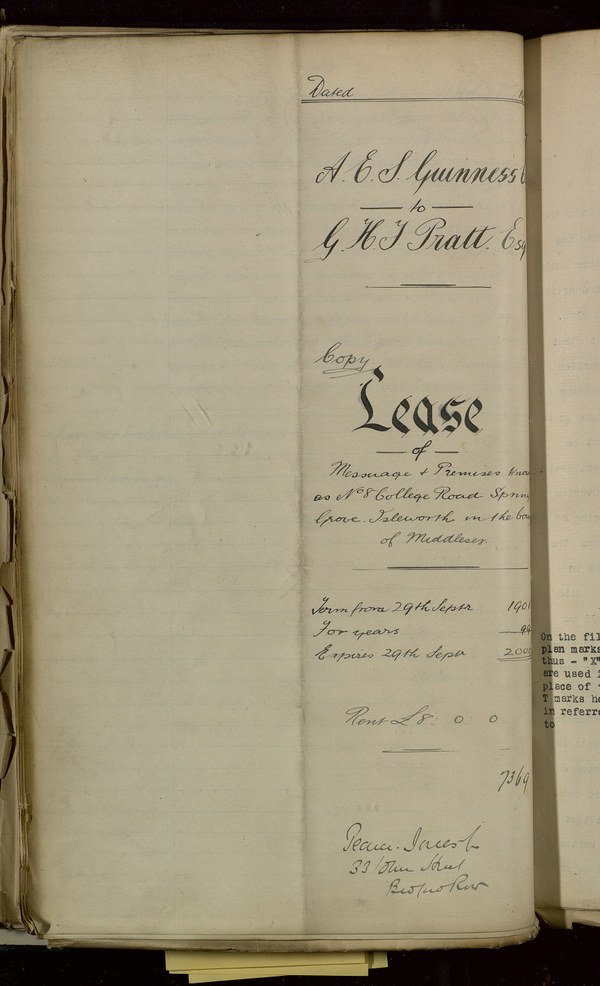 Dated
A. E. S. Guinness
to
G. H. J Pratt. Esq
Copy
Lease
of
Messuage & Premises
as No 8 College Road Spring
Grove. Isleworth in the
of Middlesex
Term from 29th Septr 190
For years 99
Expires 29th Septr 2000
Rent £8: 0 0
7369
On the fil
plan marks
thus - "X"
are used i
place of
T marks he
in referre
to